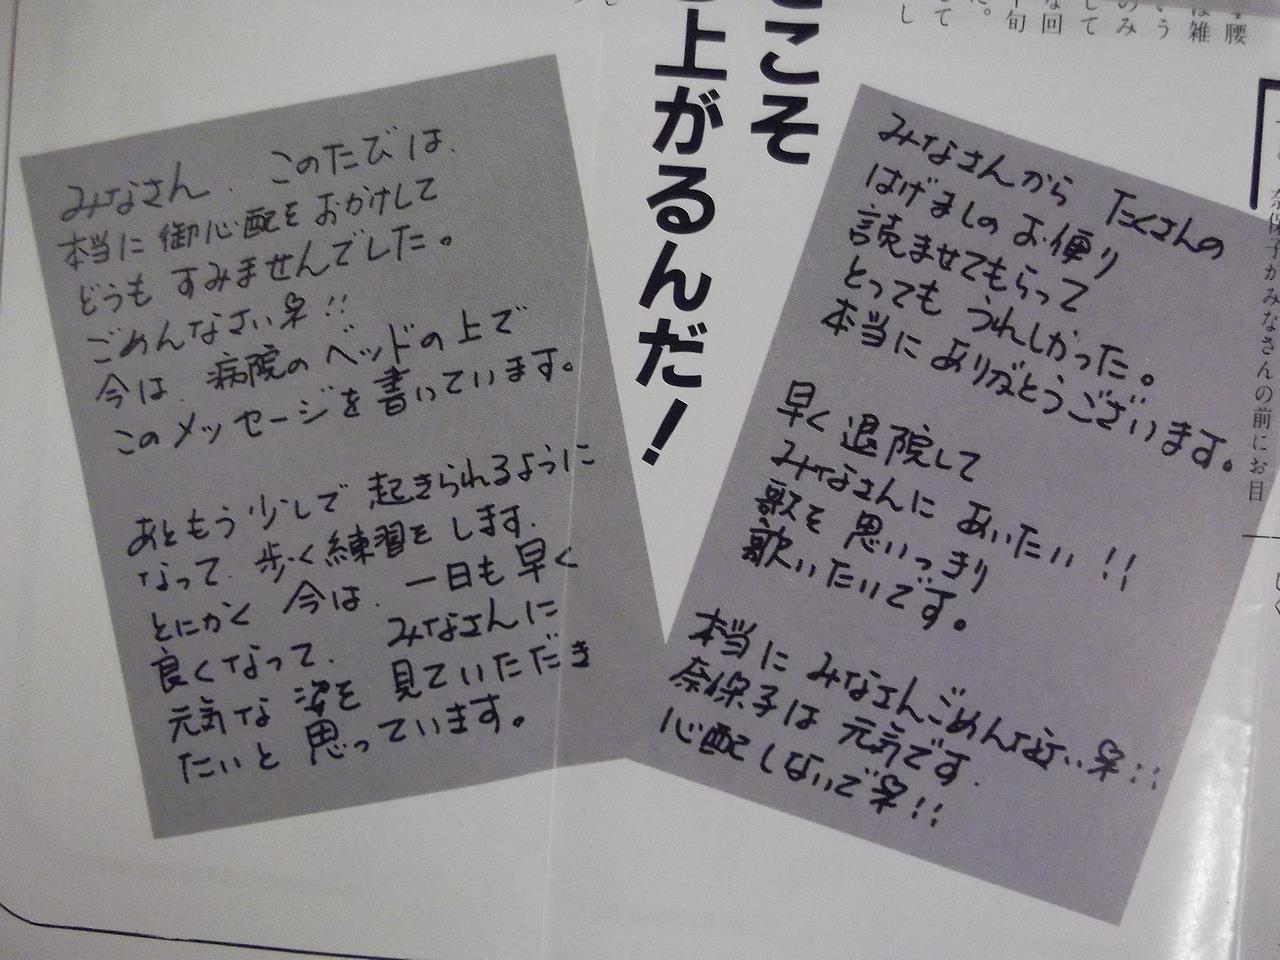 こそ
上がるんだ!
みなさん、このたびは、
本当に御心配をおかけして
どうもすみませんでした。
ごめんなさい!!
今は、病院のベッドの上で
このメッセージを書いています。
あともう少しで起きられるように
なって、歩く練習をします。
とにかく今は、一日も早く
良くなって、みなさんに
元気な姿を見ていただき
たいと思っています。
みなさんから たくさんの
はげましのお便り
読ませてもらって
とってもうれしかった。
本当にありがとうございます。
早く退院して
みなさんにあいたい!!
歌を思いっきり
歌いたいです。
本当にみなさんごめんなさい!!
奈保子は元気です。
心配しないで!!
奈保子がみなさんの前にお目